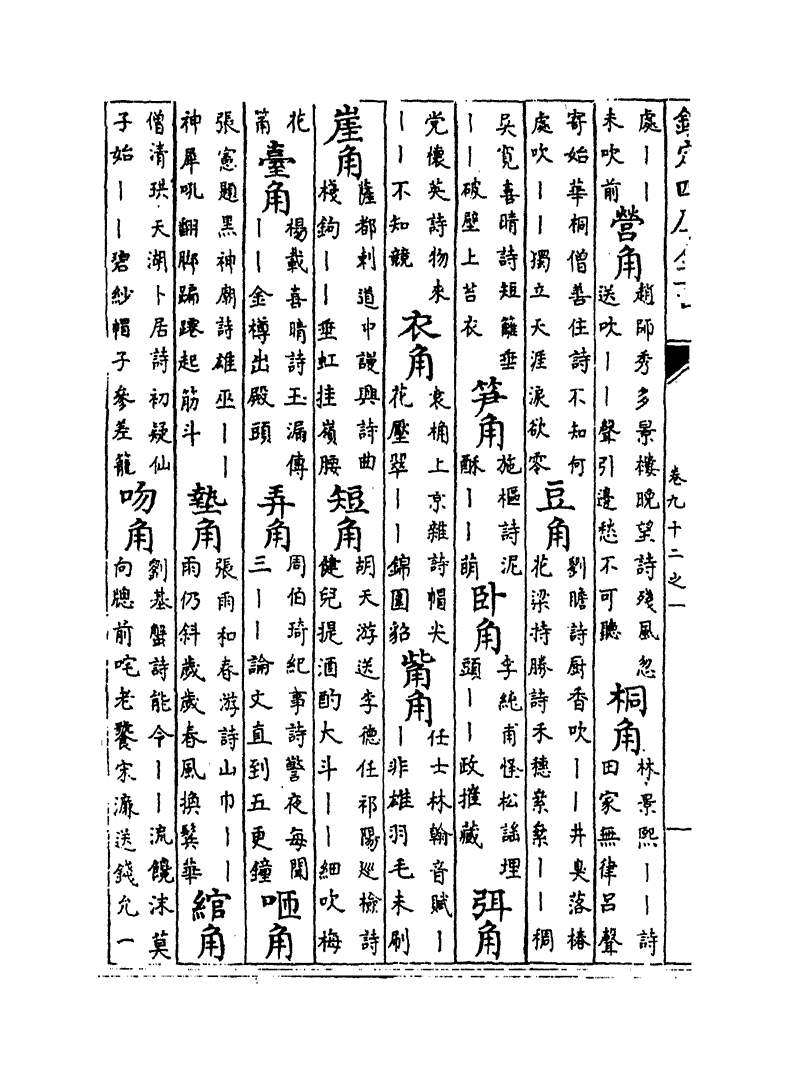 欽定四庫全書
卷九十二之一
處丨丨
未吹前
營角
趙師秀多景樓晩望詩殘風忽
送吹丨丨聲引邊愁不可聽
桐角
林景熙丨丨詩
田家無律呂聲
寄始華桐僧善住詩不知何
處吹丨丨獨立天涯淚欲零
豆角
劉瞻詩厨香吹丨丨井臭落椿
花梁持勝詩禾穗纍纍丨丨稠
吳寛喜晴詩短籬垂
丨丨破壁上苔衣
笋角
施樞詩泥
酥丨丨萌
卧角
李純甫怪松謡埋
頭丨丨政摧藏
弭角
党懷英詩物來
丨丨不知競
衣角
袁桷上京雜詩帽尖
花壓翠丨丨錦圍貂
觜角
任士林翰音賦丨
丨非雄羽毛未刷
崖角
薩都剌道中謾興詩曲
棧鉤丨丨垂虹挂嶺腰
短角
胡天游送李德任祁陽廵檢詩
健兒提酒酌大斗丨丨細吹梅
花
筩
臺角
楊載喜晴詩玉漏傳
丨丨金樽出殿頭
弄角
周伯琦紀事詩警夜每聞
三丨丨論文直到五更鐘
咂角
張憲題黑神廟詩雄巫丨丨
神犀吼翻脚蹁躚起筋斗
墊角
張雨和春游詩山巾丨丨
雨仍斜歲歲春風換鬢華
綰角
僧清珙天湖卜居詩初疑仙
子始丨丨碧紗帽子參差籠
吻角
劉基蟹詩能令丨丨流饞沫莫
向牕前咤老饕宋濂送錢允一